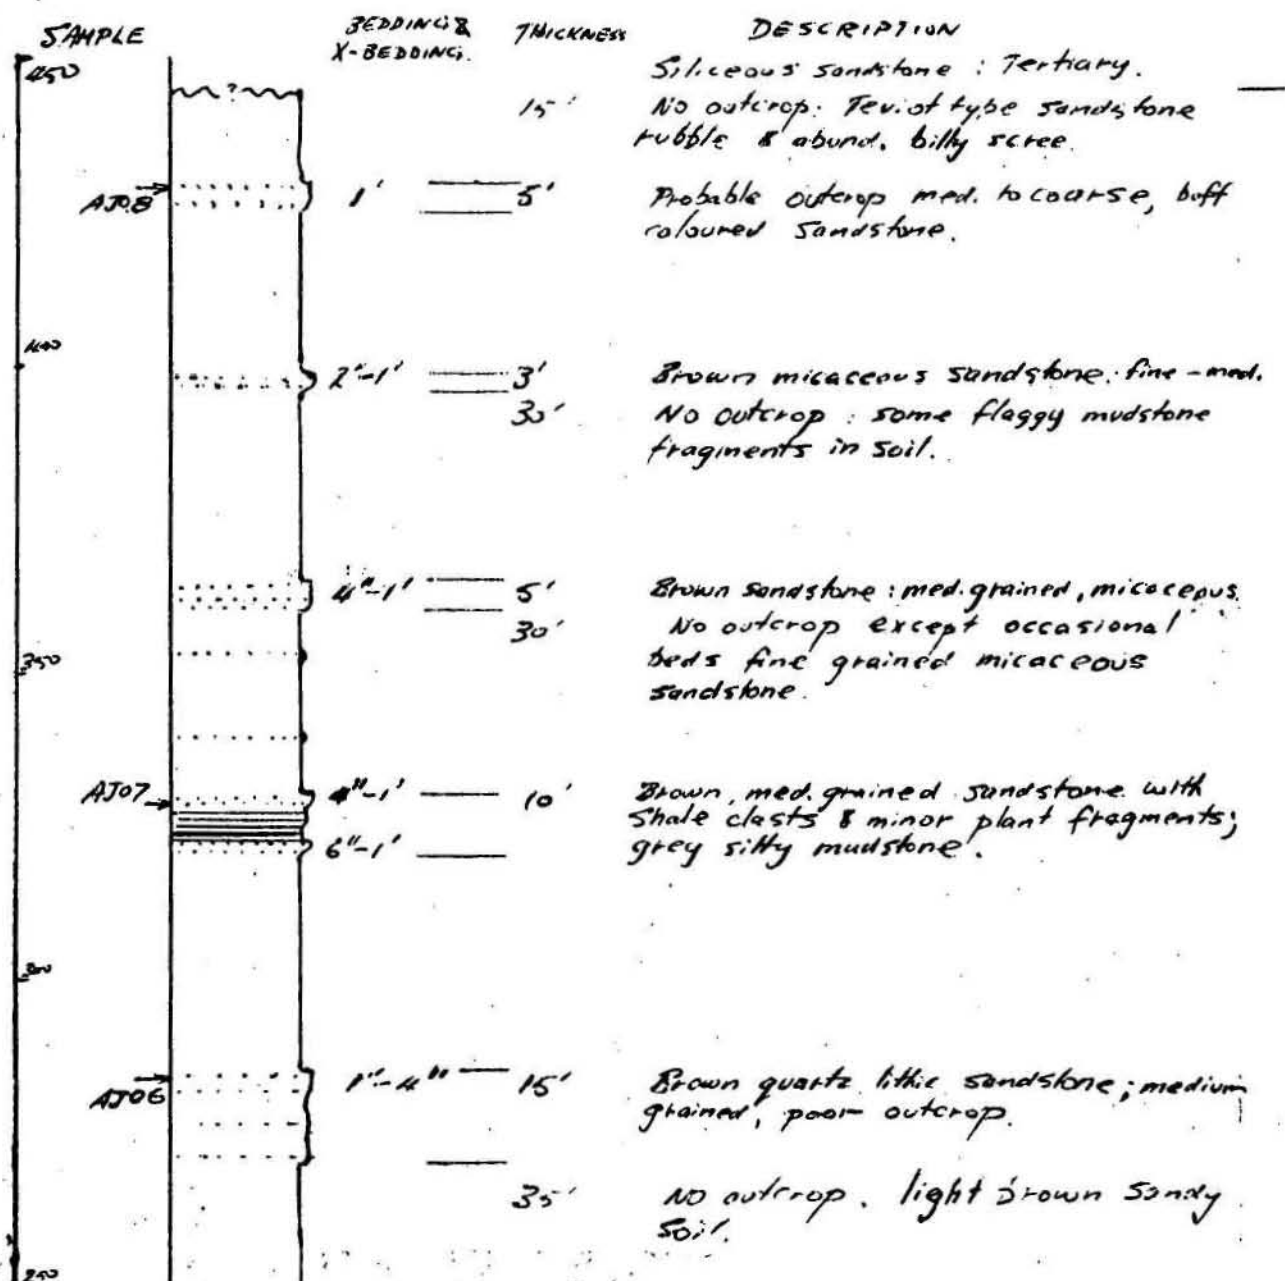 SAMPLE BEDDING & THICKNESS DESCRIPTION
X-BEDDING.
450 Siliceous sandstone : Tertiary.
? 15' No outcrop: Teviot type sandstone
rubble & abund. billy scree.
AJ08 1' 5' Probable outcrop med. to coarse, buff
coloured sandstone.
400
2"-1' 3' Brown micaceous sandstone. fine-med.
30' No outcrop : some flaggy mudstone
fragments in soil.
4"-1' 5' Brown sandstone : med. grained, micaceous.
30' No outcrop except occasional
350 beds fine grained micaceous
sandstone.
AJ07 4"-1' 10' Brown, med. grained sandstone with
shale clasts & minor plant fragments;
6"-1' grey silty mudstone.
300
AJ06 1"-4" 15' Brown quartz lithic sandstone; medium
grained, poor outcrop.
35' No outcrop. light brown sandy
soil.
250